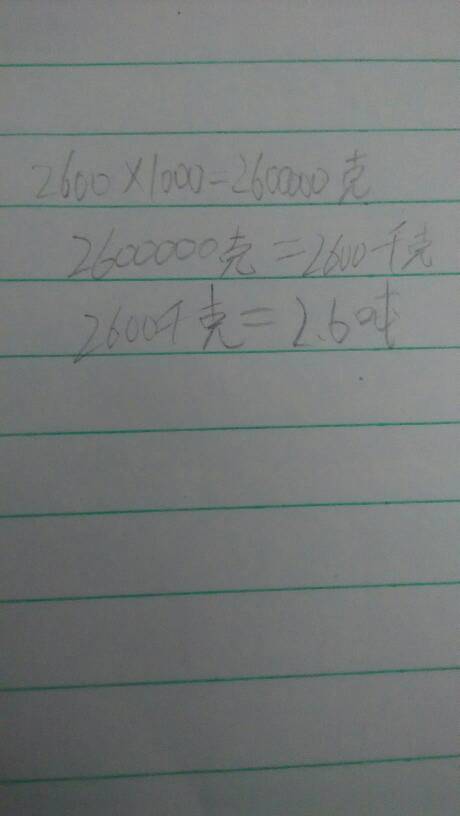 2600×1000=2600000克
2600000克=2600千克
2600千克=2.6吨